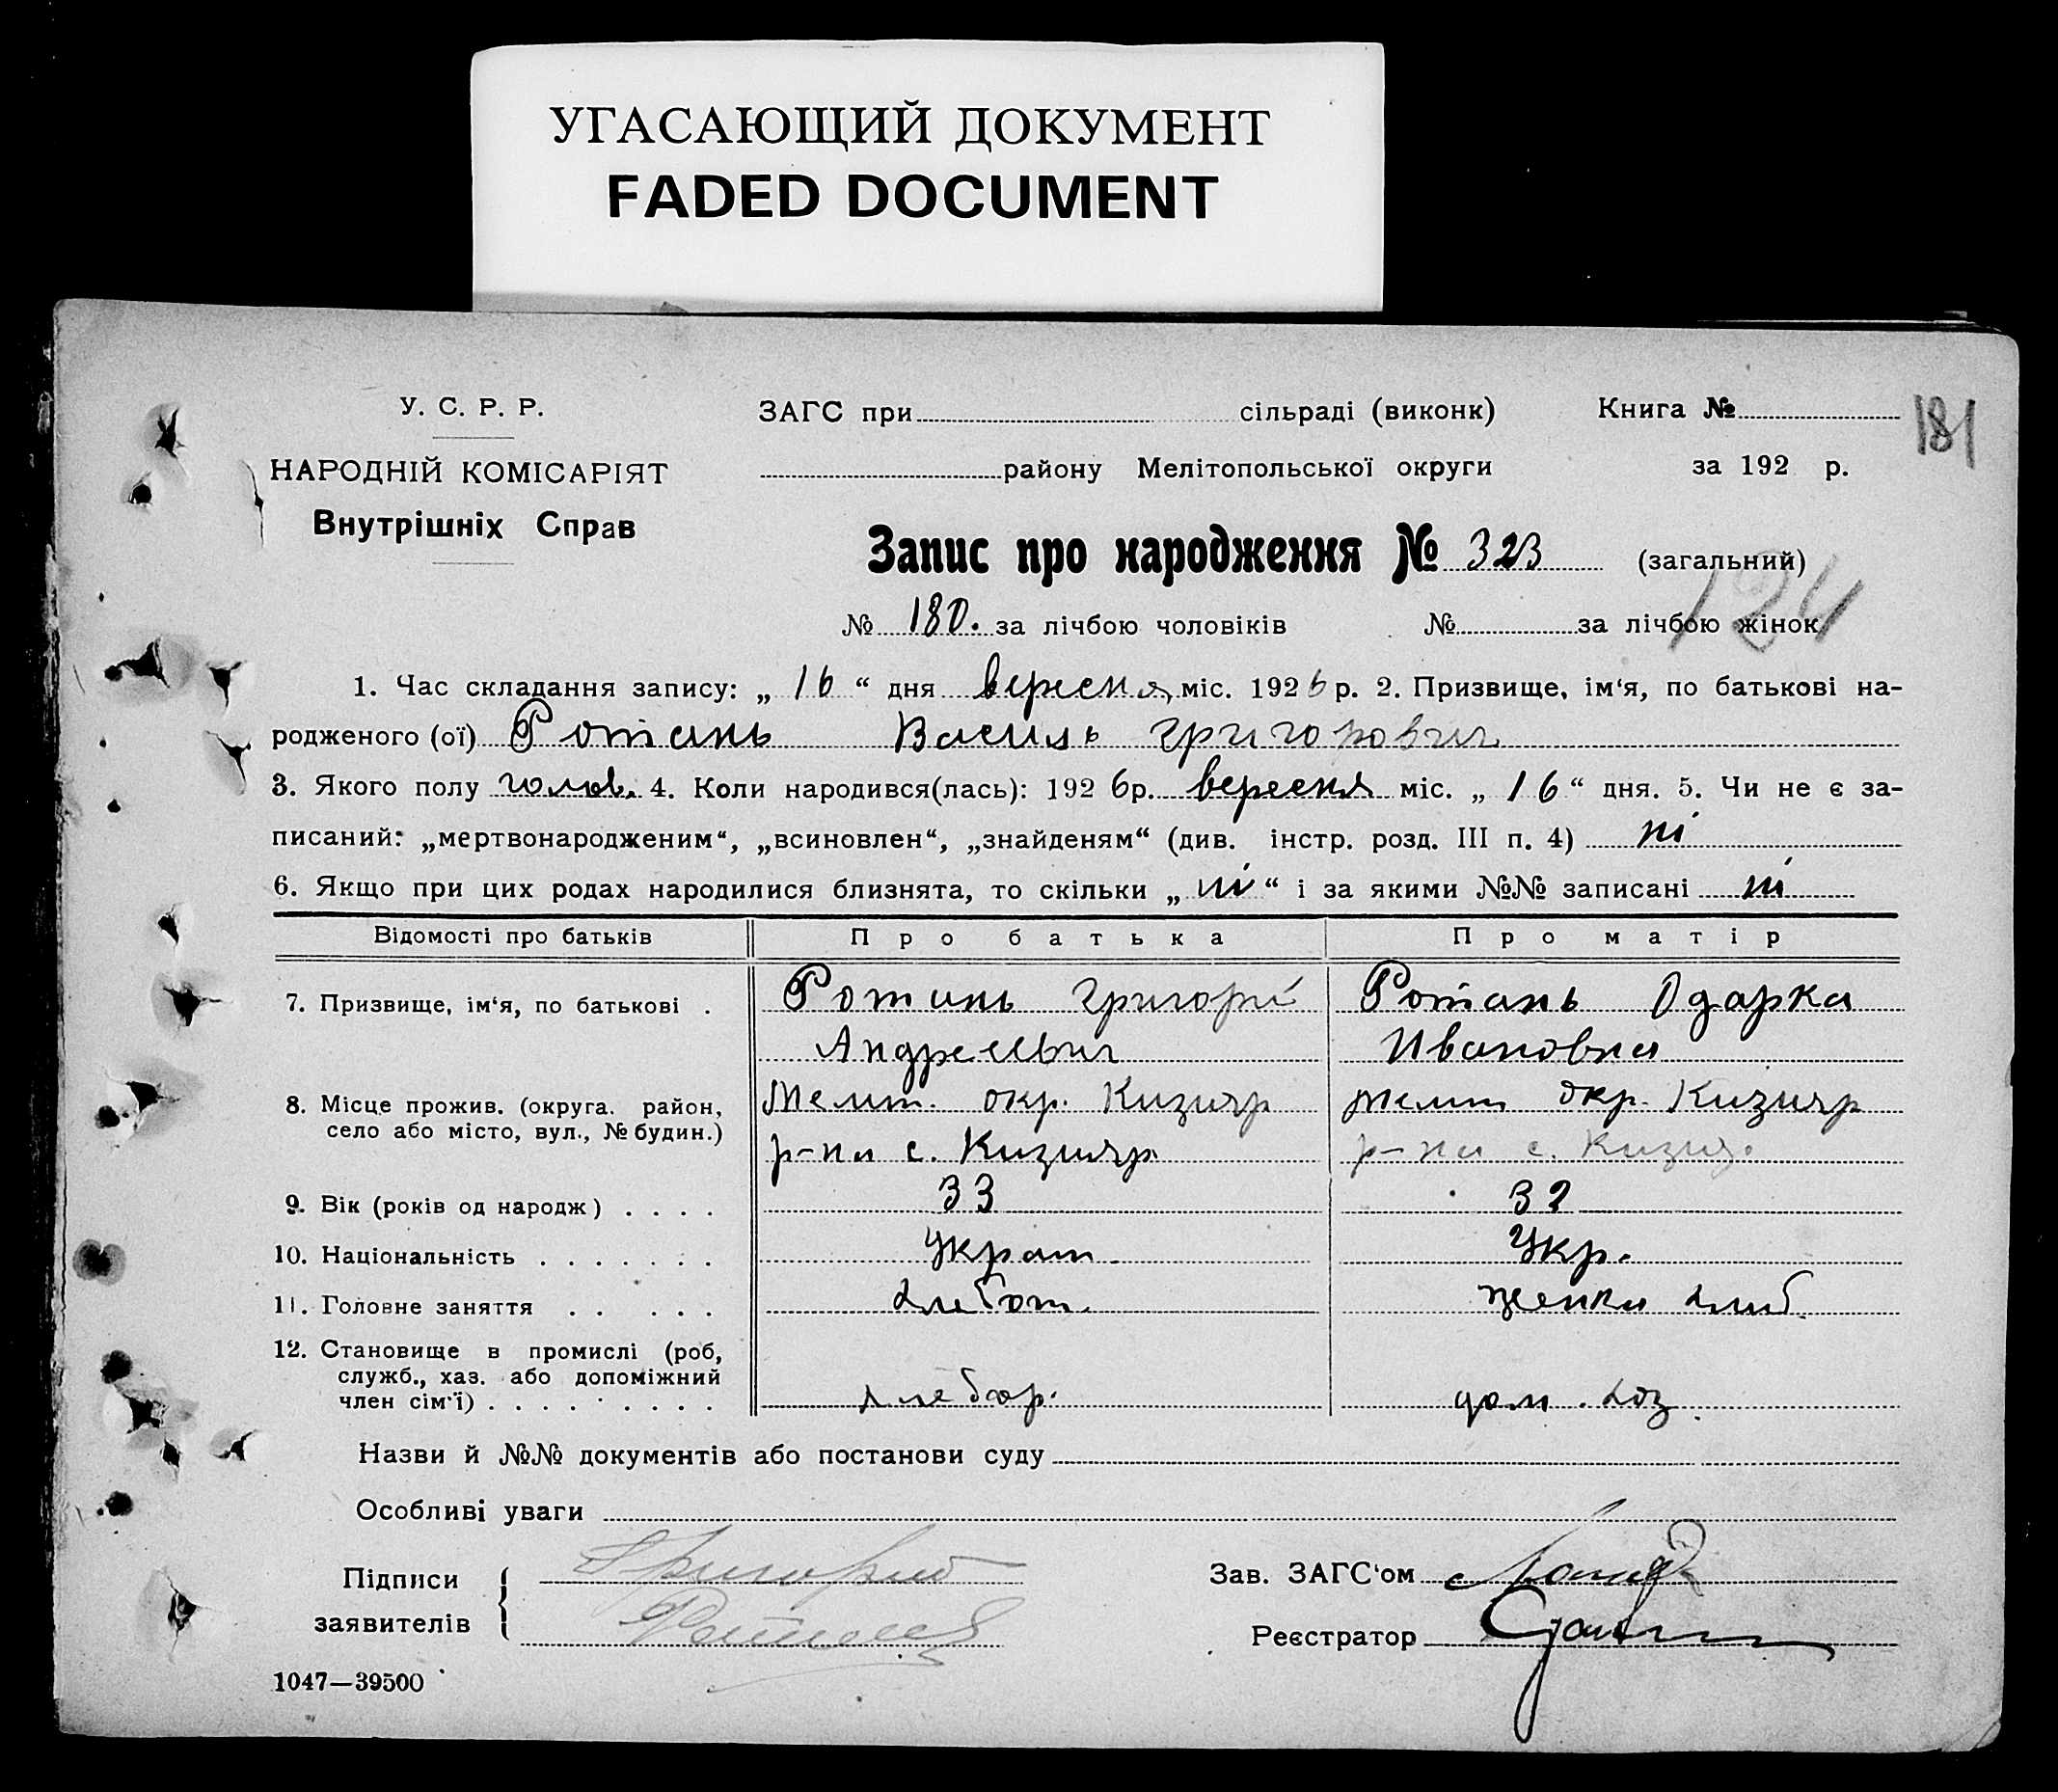 УГАСАЮЩИЙ ДОКУМЕНТ
FADED DOCUMENT
У. С. Р. Р.
ЗАГС при сільраді (виконк)
Книга №
181
НАРОДНІЙ КОМІСАРІЯТ
району Мелітопольської округи
за 192 р.
Внутрішніх Справ
Запис про народження № 323 (загальний)
124
№ 180. за лічбою чоловіків № за лічбою жінок
1. Час складання запису: „ 16 “ дня вересня міс. 1926 р. 2. Призвище, ім‘я, по батькові на-
родженого (ої) Ротань Василь Григорович
3. Якого полу чолов. 4. Коли народився(лась): 192 6р. вересня міс. „ 16 “ дня. 5. Чи не є за-
писаний: „мертвонародженим“, „всиновлен“, „знайденям“ (див. інстр. розд. III п. 4) ні
6. Якщо при цих родах народилися близнята, то скільки „ ні “ і за якими №№ записані ні
Відомості про батьків Про батька Про матір
7. Призвище, ім‘я, по батькові . Ротань Григорій Ротань Одарка
Андреевич Ивановна
8. Місце прожив. (округа. район, Меліт. окр. Кизияр Меліт окр. Кизияр
село або місто, вул., № будин.) р-на с. Кизияр р-на с. Кизия.
9. Вік (років од народж) . . . . 33 32
10. Національність . . . . . . . Украт Укр.
11. Головне заняття . . . . . хлебот. женка хліб.
12. Становище в промислі (роб,
служб., хаз. або допоміжний
член сім‘ї) . . . . . . . . . хлебор. дом. хоз.
Назви й №№ документів або постанови суду
Особливі уваги
Підписи Григорий
заявителів
Зав. ЗАГС‘ом
Реєстратор
1047—39500